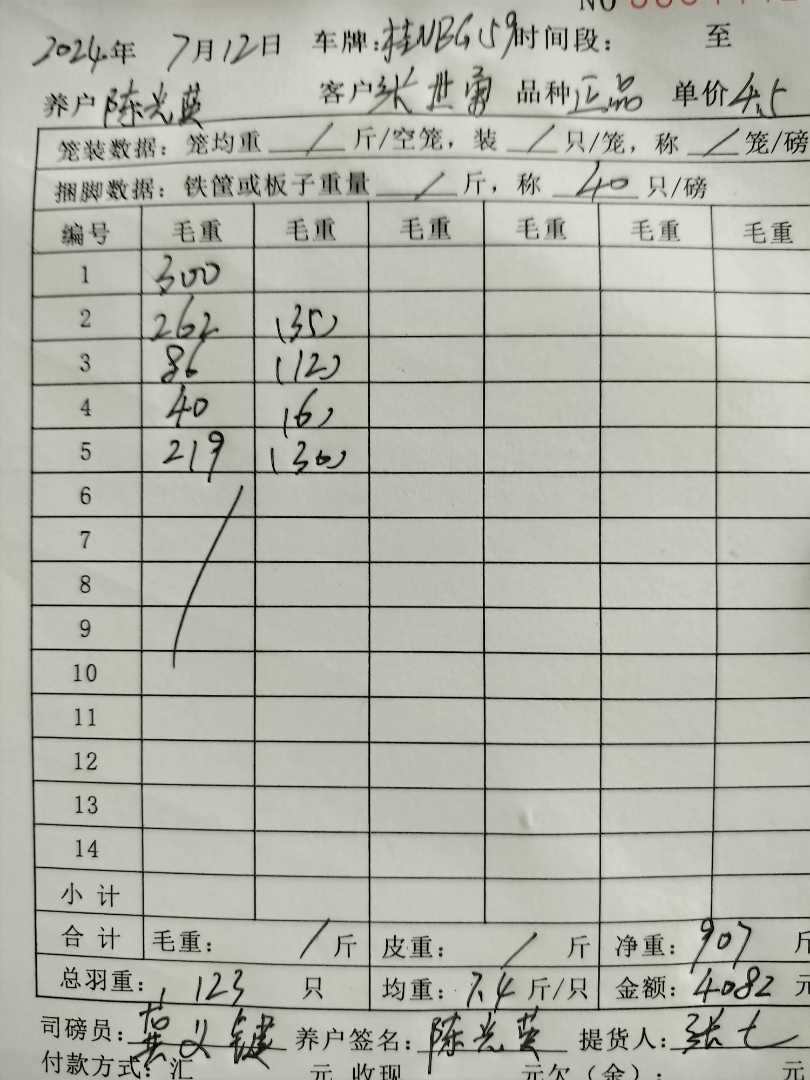 NO
2024年 7月12日 车牌:桂NBG159时间段: 至
养户陈光英 客户张世勇 品种正品 单价4.5
笼装数据:笼均重 / 斤/空笼,装 / 只/笼,称 / 笼/磅
捆脚数据:铁筐或板子重量 / 斤,称 40 只/磅
编号 毛重 毛重 毛重 毛重 毛重 毛重
1 300
2 262 (35)
3 86 (12)
4 40 (6)
5 219 (30)
6
7
8
9
10
11
12
13
14
小计
合计 毛重: / 斤 皮重: / 斤 净重:907 斤
总羽重: 123 只 均重:7.4斤/只 金额:4082元
司磅员:黄义键 养户签名:陈光英 提货人:张七
付款方式:汇 元 收现 元欠(金): 元